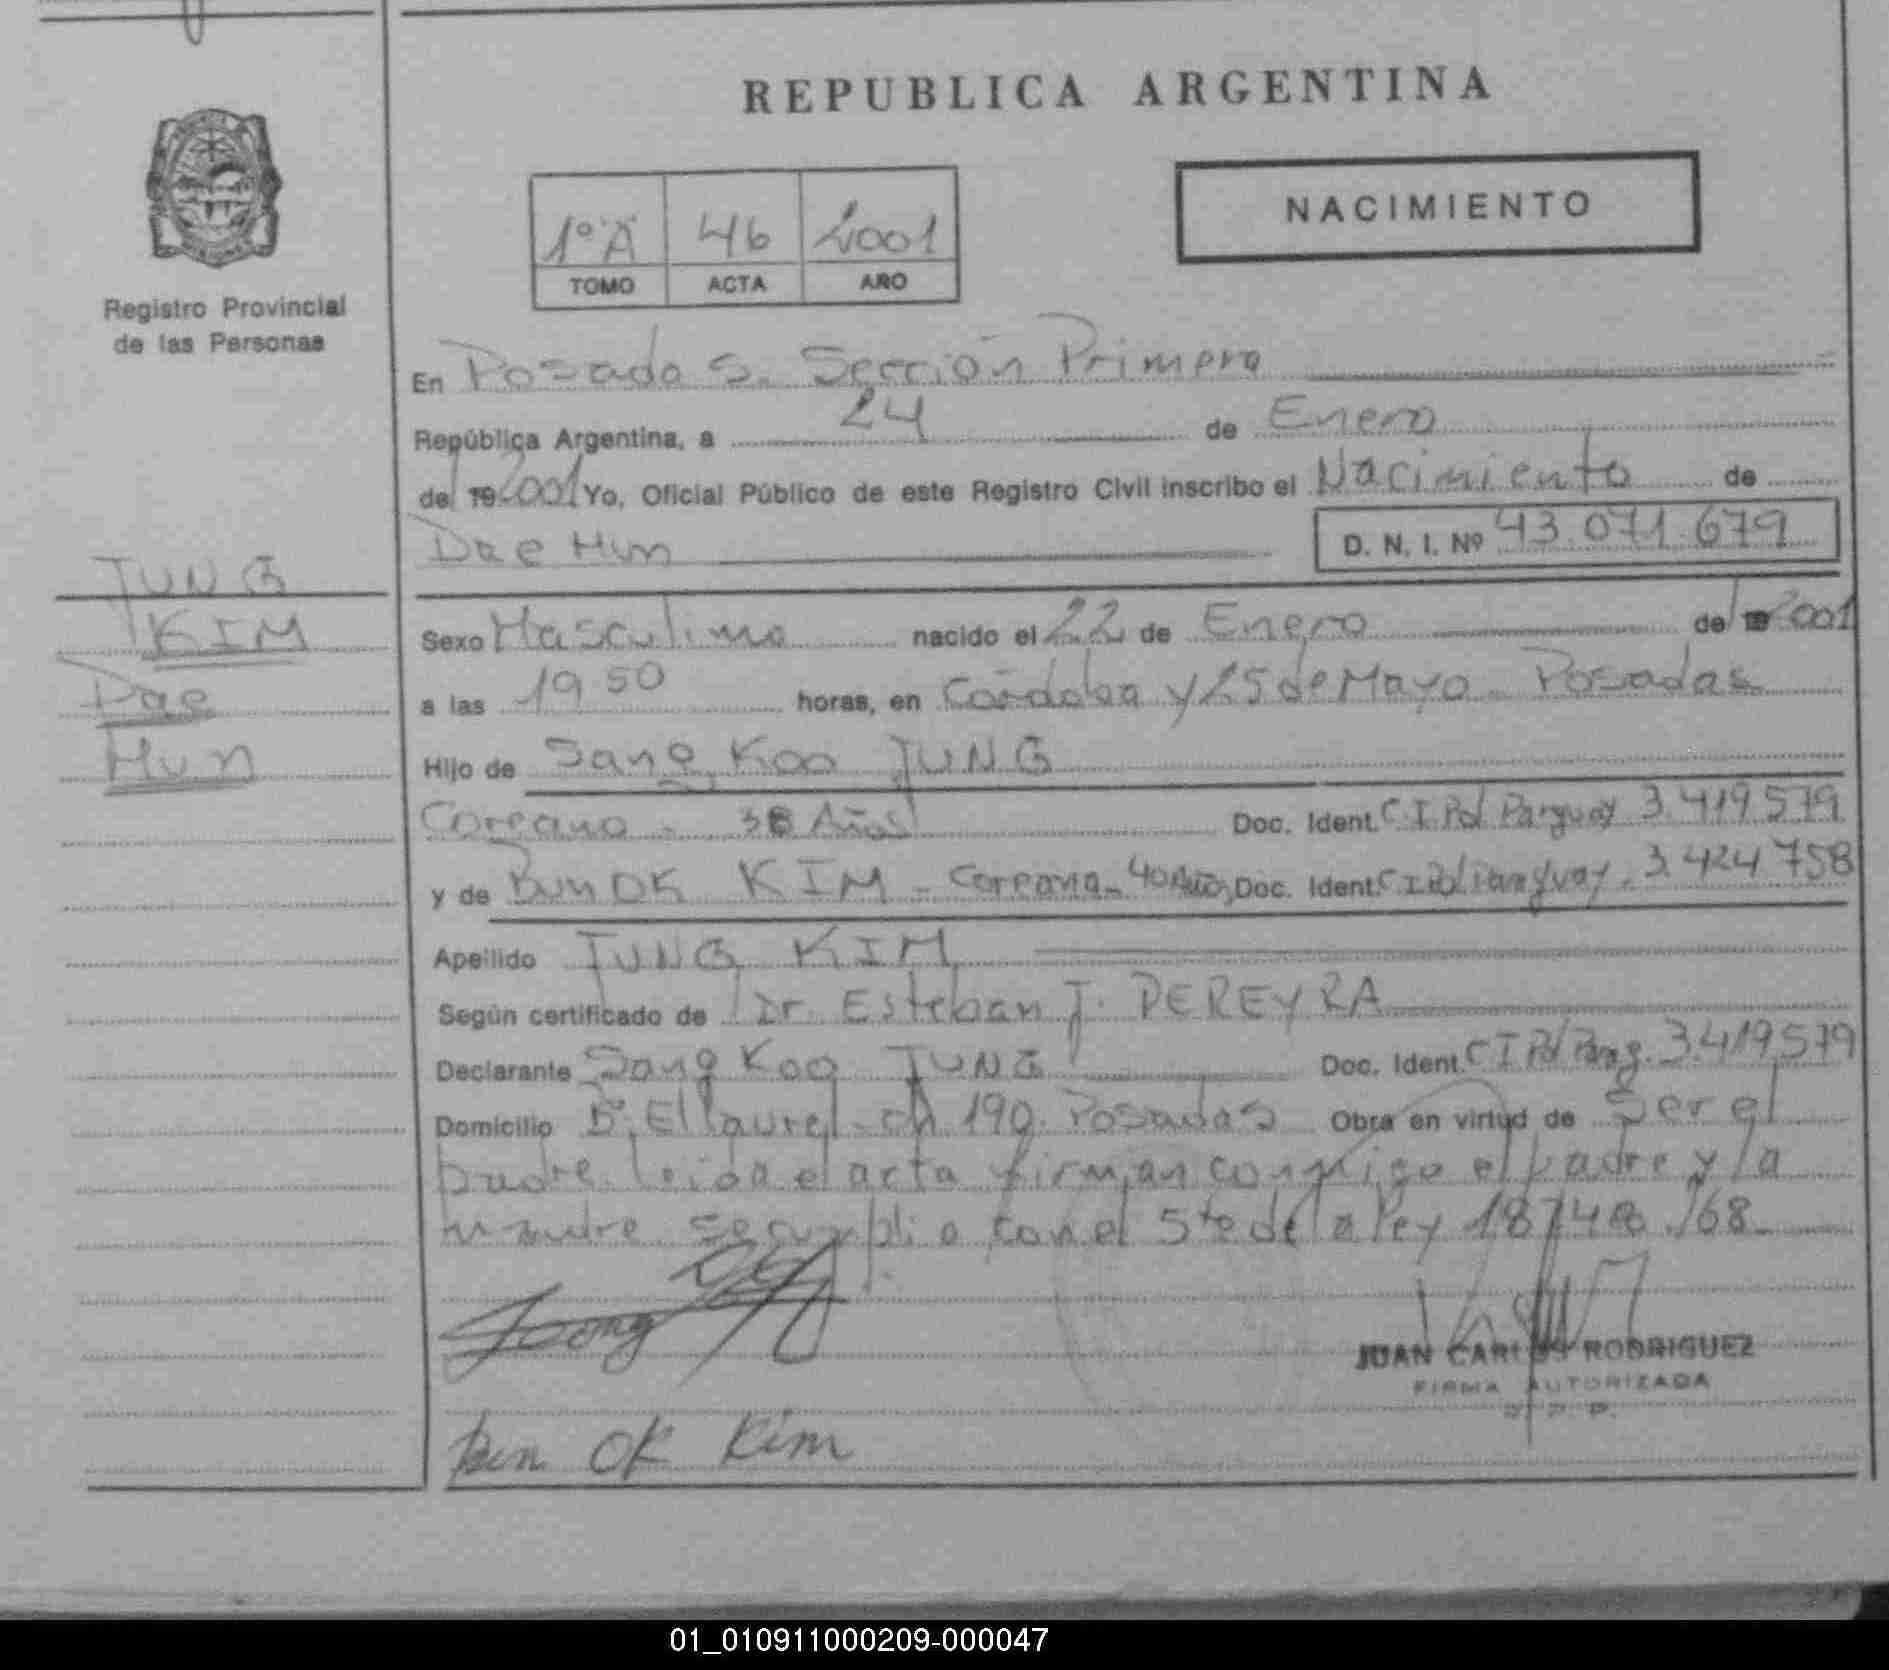 REPUBLICA ARGENTINA
NACIMIENTO
1º A 46 2001
TOMO ACTA AÑO
Registro Provincial
de las Personas
En Posadas. Sección Primera
República Argentina, a 24 de Enero
de 19 2001 Yo, Oficial Público de este Registro Civil inscribo el Nacimiento de
Dae Hun D. N. I. Nº 43.071.679
JUNG
KIM
Dae
Hun
Sexo Masculino nacido el 22 de Enero de 19 2001
a las 19 50 horas, en Córdoba y 25 de Mayo - Posadas
Hijo de Sang Koo JUNG
Coreano - 38 Años Doc. Ident. C.I. Pol Parguay 3.419.579
y de Bun OK KIM - Coreana - 40 Años, Doc. Ident. C I Pol Paraguay. 3.424 758
Apellido JUNG KIM
Según certificado de Dr. Esteban J. PEREYRA
Declarante Sang Koo JUNG Doc. Ident. C I Pol Parag. 3.419.579
Domicilio Bº. El laurel - ch 190. Posadas Obra en virtud de Ser el
padre. leida el acta firman conmigo el padre y la
madre. se cumplio con el 5to de la ley 18748 /68
JUAN CARLOS RODRIGUEZ
FIRMA AUTORIZADA
Bun OK Kim
01_010911000209-000047